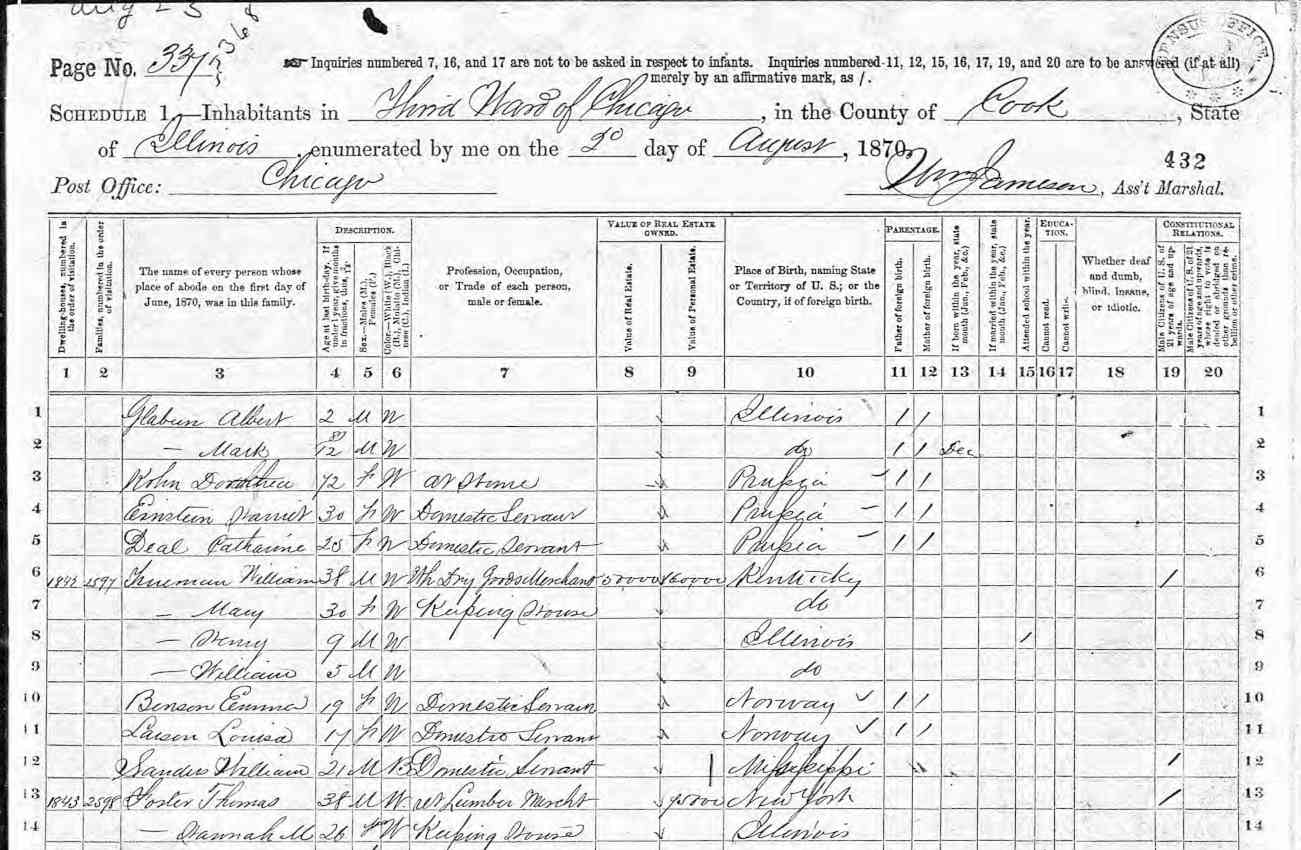 Aug 23
Page No. 337 368
Inquiries numbered 7, 16, and 17 are not to be asked in respect to infants. Inquiries numbered 11, 12, 15, 16, 17, 19, and 20 are to be answered (if at all)
merely by an affirmative mark, as /.
CENSUS OFFICE
SCHEDULE 1.—Inhabitants in Third Ward of Chicago, in the County of Cook, State
of Illinois, enumerated by me on the 20 day of August, 1870.
432
Post Office: Chicago Wm Jameson, Ass't Marshal.
DESCRIPTION. VALUE OF REAL ESTATE OWNED. PARENTAGE. EDUCATION. CONSTITUTIONAL RELATIONS.
Dwelling-houses, numbered in the order of visitation.
Families, numbered in the order of visitation.
The name of every person whose place of abode on the first day of June, 1870, was in this family.
Age at last birth-day. If under 1 year, give months in fractions, thus, 3/12
Sex.—Males (M.), Females (F.)
Color.—White (W.), Black (B.), Mulatto (M.), Chinese (C.), Indian (I.)
Profession, Occupation, or Trade of each person, male or female.
Value of Real Estate.
Value of Personal Estate.
Place of Birth, naming State or Territory of U. S.; or the Country, if of foreign birth.
Father of foreign birth.
Mother of foreign birth.
If born within the year, state month (Jan., Feb., &c.)
If married within the year, state month (Jan., Feb., &c.)
Attended school within the year.
Cannot read.
Cannot write.
Whether deaf and dumb, blind, insane, or idiotic.
Male Citizens of U. S. of 21 years of age and upwards.
Male Citizens of U. S. of 21 years of age and upwards, whose right to vote is denied or abridged on other grounds than rebellion or other crime.
1 2 3 4 5 6 7 8 9 10 11 12 13 14 15 16 17 18 19 20
1 Albert 2 M W Illinois / / 1
2 — Mark 8/12 M W do / / Dec 2
3 Kohn Dorothea 72 F W at Home Prussia / / 3
4 Einstein Harriet 30 F W Domestic Servant Prussia / / 4
5 Deal Catharine 25 F W Domestic Servant Prussia / / 5
6 1842 2597 Trueman William 38 M W Wh Dry Goods Merchant Kentucky / 6
7 — Mary 30 F W Keeping House do 7
8 — Henry 9 M W Illinois / 8
9 — William 5 M W do 9
10 Benson Emma 19 F W Domestic Servant Norway / / 10
11 Larson Louisa 17 F W Domestic Servant Norway / / 11
12 Sanders William 21 M B Domestic Servant Mississippi / 12
13 1843 2598 Foster Thomas 38 M W ret Lumber Mercht New York / 13
14 — Hannah M 26 F W Keeping House Illinois 14